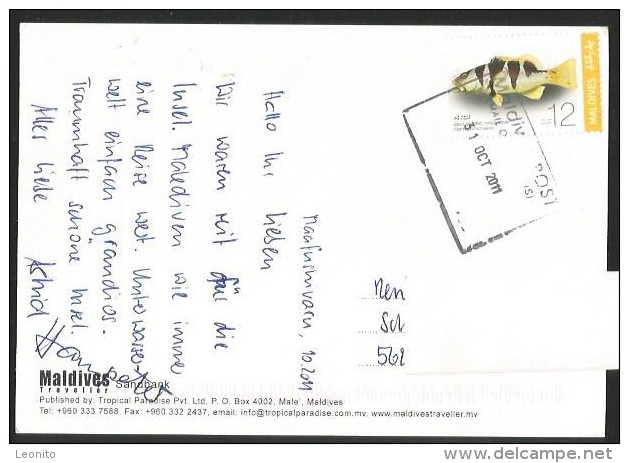 Maafushivaru, 10.2011
Hallo Ihr lieben
Wir waren mit die
Insel. Malediven wie immer
eine Reise wert. Unterwasser-
welt einfach grandios.
Traumhaft schöne Insel.
Alles liebe Astrid
MALDIVES
12
Maldiv POST
31 OCT 2011
Nen
Sch
562
Maldives Sandbank
Traveller
Published by: Tropical Paradise Pvt. Ltd, P. O. Box 4002, Male', Maldives
Tel: +960 333 7588, Fax: +960 332 2437, email: info@tropicalparadise.com.mv, www.maldivestraveller.mv
delcampe.net